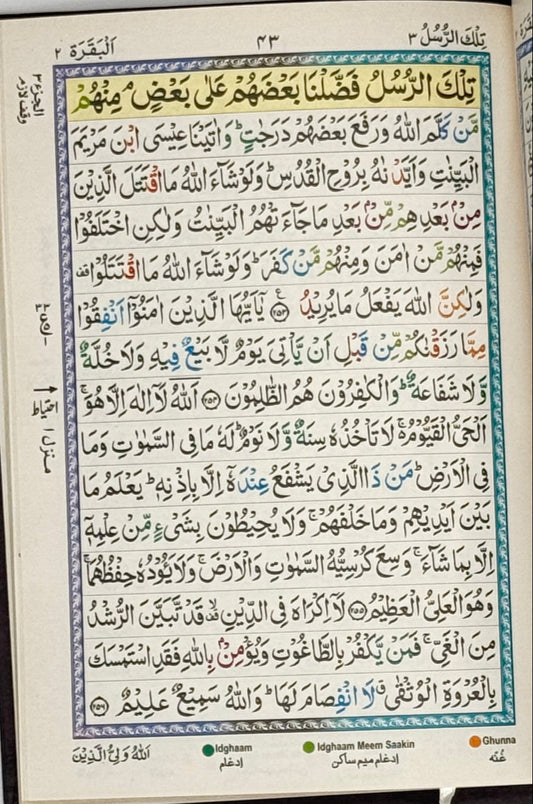 تِلْكَ الرُّسُلُ ٣
٤٣
اَلْبَقَرَة ٢
تِلْكَ الرُّسُلُ فَضَّلْنَا بَعْضَهُمْ عَلٰى بَعْضٍ ۘ مِنْهُمْ
مَّنْ كَلَّمَ اللّٰهُ وَرَفَعَ بَعْضَهُمْ دَرَجٰتٍ ؕ وَاٰتَيْنَا عِيْسَى ابْنَ مَرْيَمَ
الْبَيِّنٰتِ وَاَيَّدْنٰهُ بِرُوْحِ الْقُدُسِ ؕ وَلَوْ شَآءَ اللّٰهُ مَا اقْتَتَلَ الَّذِيْنَ
مِنْۢ بَعْدِهِمْ مِّنْۢ بَعْدِ مَا جَآءَتْهُمُ الْبَيِّنٰتُ وَلٰكِنِ اخْتَلَفُوْا
فَمِنْهُمْ مَّنْ اٰمَنَ وَمِنْهُمْ مَّنْ كَفَرَ ؕ وَلَوْ شَآءَ اللّٰهُ مَا اقْتَتَلُوْا
وَلٰكِنَّ اللّٰهَ يَفْعَلُ مَا يُرِيْدُ ﴿٢٥٣﴾ يٰۤاَيُّهَا الَّذِيْنَ اٰمَنُوْۤا اَنْفِقُوْا
مِمَّا رَزَقْنٰكُمْ مِّنْ قَبْلِ اَنْ يَّاْتِيَ يَوْمٌ لَّا بَيْعٌ فِيْهِ وَلَا خُلَّةٌ
وَّلَا شَفَاعَةٌ ؕ وَالْكٰفِرُوْنَ هُمُ الظّٰلِمُوْنَ ﴿٢٥٤﴾ اَللّٰهُ لَاۤ اِلٰهَ اِلَّا هُوَ ۚ
اَلْحَيُّ الْقَيُّوْمُ ۚ لَا تَاْخُذُهٗ سِنَةٌ وَّلَا نَوْمٌ ؕ لَهٗ مَا فِي السَّمٰوٰتِ وَمَا
فِي الْاَرْضِ ؕ مَنْ ذَا الَّذِيْ يَشْفَعُ عِنْدَهٗۤ اِلَّا بِاِذْنِهٖ ؕ يَعْلَمُ مَا
بَيْنَ اَيْدِيْهِمْ وَمَا خَلْفَهُمْ ۚ وَلَا يُحِيْطُوْنَ بِشَيْءٍ مِّنْ عِلْمِهٖۤ
اِلَّا بِمَا شَآءَ ۚ وَسِعَ كُرْسِيُّهُ السَّمٰوٰتِ وَالْاَرْضَ ۚ وَلَا يَـُٔوْدُهٗ حِفْظُهُمَا ۚ
وَهُوَ الْعَلِيُّ الْعَظِيْمُ ﴿٢٥٥﴾ لَاۤ اِكْرَاهَ فِي الدِّيْنِ ۙ قَدْ تَّبَيَّنَ الرُّشْدُ
مِنَ الْغَيِّ ۚ فَمَنْ يَّكْفُرْ بِالطَّاغُوْتِ وَيُؤْمِنْۢ بِاللّٰهِ فَقَدِ اسْتَمْسَكَ
بِالْعُرْوَةِ الْوُثْقٰى ۗ لَا انْفِصَامَ لَهَا ؕ وَاللّٰهُ سَمِيْعٌ عَلِيْمٌ ﴿٢٥٦﴾
الجزء ٣
وقف لازم
منزل ١
احتياط
Ghunna
غُنّه
Idghaam Meem Saakin
إدغام ميم ساكن
Idghaam
إدغام
اَللّٰهُ وَلِيُّ الَّذِيْنَ